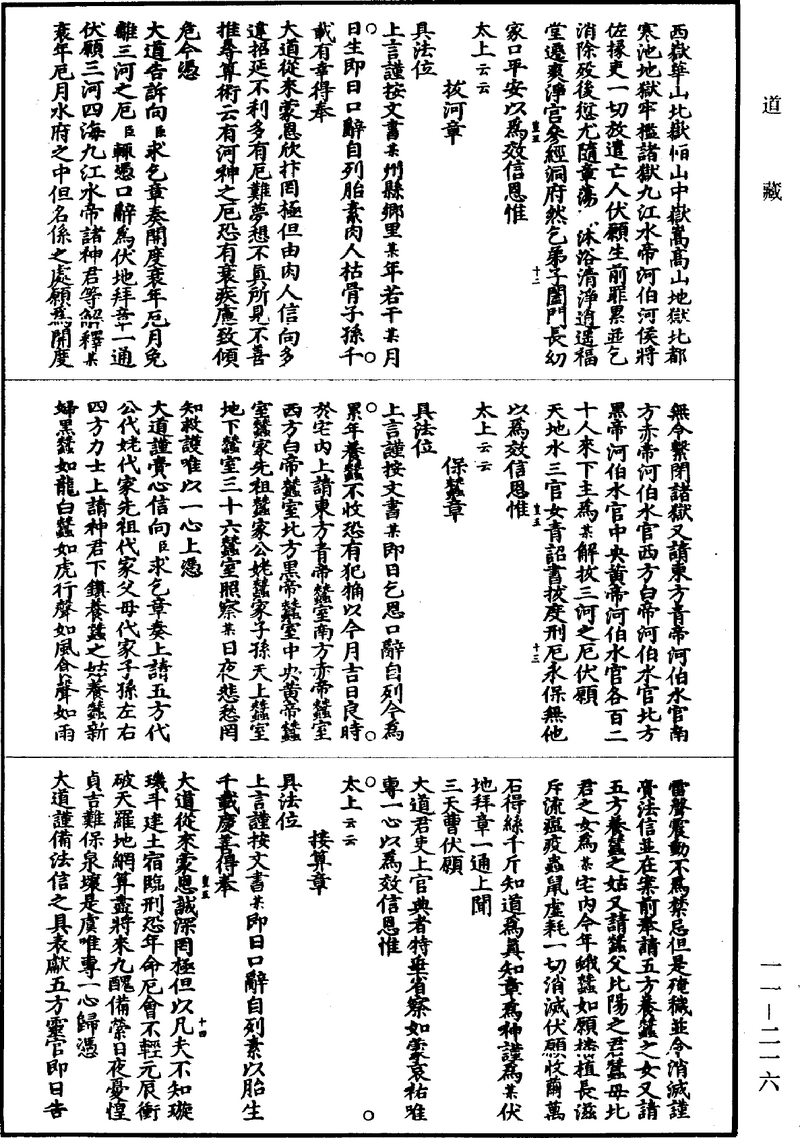 道藏
西嶽華山北嶽恒山中嶽嵩高山地獄北都
寒池地獄牢檻諸獄九江水帝河伯河侯將
佐掾吏一切放遣亡人伏願生前罪累並乞
消除歿後愆尤隨章蕩滌沐浴清淨逍遙福
堂遷爽淨宮參經洞府然乞弟子闔門長幼
家口平安以為效信恩惟
太上云云
拔河章
具法位
上言謹按文書某州縣鄉里某年若干某月
日生即日口辭自列胎素肉人枯骨子孫千
載有幸得奉
大道從來蒙恩欣抃罔極但由肉人信向多
違招延不利多有厄難夢想不真所見不善
推尋算術云有河神之厄恐有衰疾慮致傾
危今憑
大道告訴向臣求乞章奏開度衰年厄月免
離三河之厄臣輒憑口辭為伏地拜章一通
伏願三河四海九江水帝諸神君等解釋某
衰年厄月水府之中但名係之處願為開度
無令繫閉諸獄又請東方青帝河伯水官南
方赤帝河伯水官西方白帝河伯水官北方
黑帝河伯水官中央黃帝河伯水官各百二
十人來下主為某解拔三河之厄伏願
天地水三官女青詔書拔度刑厄永保無他
以為效信恩惟
太上云云
保蠶章
具法位
上言謹按文書某即日乞恩口辭自列今為
累年養蠶不收恐有犯觸以今月吉日良時
於宅內上請東方青帝蠶室南方赤帝蠶室
西方白帝蠶室北方黑帝蠶室中央黃帝蠶
室蠶家先祖蠶家公姥蠶家子孫天上蠶室
地下蠶室三十六蠶室照察某日夜悲愁罔
知救護唯以一心上憑
大道謹賫心信向臣求乞章奏上請五方代
公代姥代家先祖代家父母代家子孫左右
四方力士上請神君下鎮養蠶之姑養蠶新
婦黑蠶如龍白蠶如虎行聲如風食聲如雨
雷聲震動不為禁忌但是殗穢並令消滅謹
賫法信並在案前奉請五方養蠶之女又請
五方養蠶之姑又請蠶父北陽之君蠶母北
君之女為某宅內今年蛾蠶如願播植長滋
斥流瘟疫蟲鼠虛耗一切消滅伏願收繭萬
石得絲千斤知道為真知章為神謹為某伏
地拜章一通上聞
三天曹伏願
大道君吏上官典者特垂省察如蒙哀祐唯
專一心以為效信恩惟
太上云云
接算章
具法位
上言謹按文書某即日口辭自列素以胎生
千載慶善得奉
大道從來蒙恩誠深罔極但以凡夫不知璇
璣斗建土宿臨刑恐年命厄會不輕元辰衝
破天羅地網算盡將來九醜備縈日夜憂惶
貞吉難保泉壤是虞唯專一心歸憑
大道謹備法信之具表獻五方靈官即日告
一一—二一六